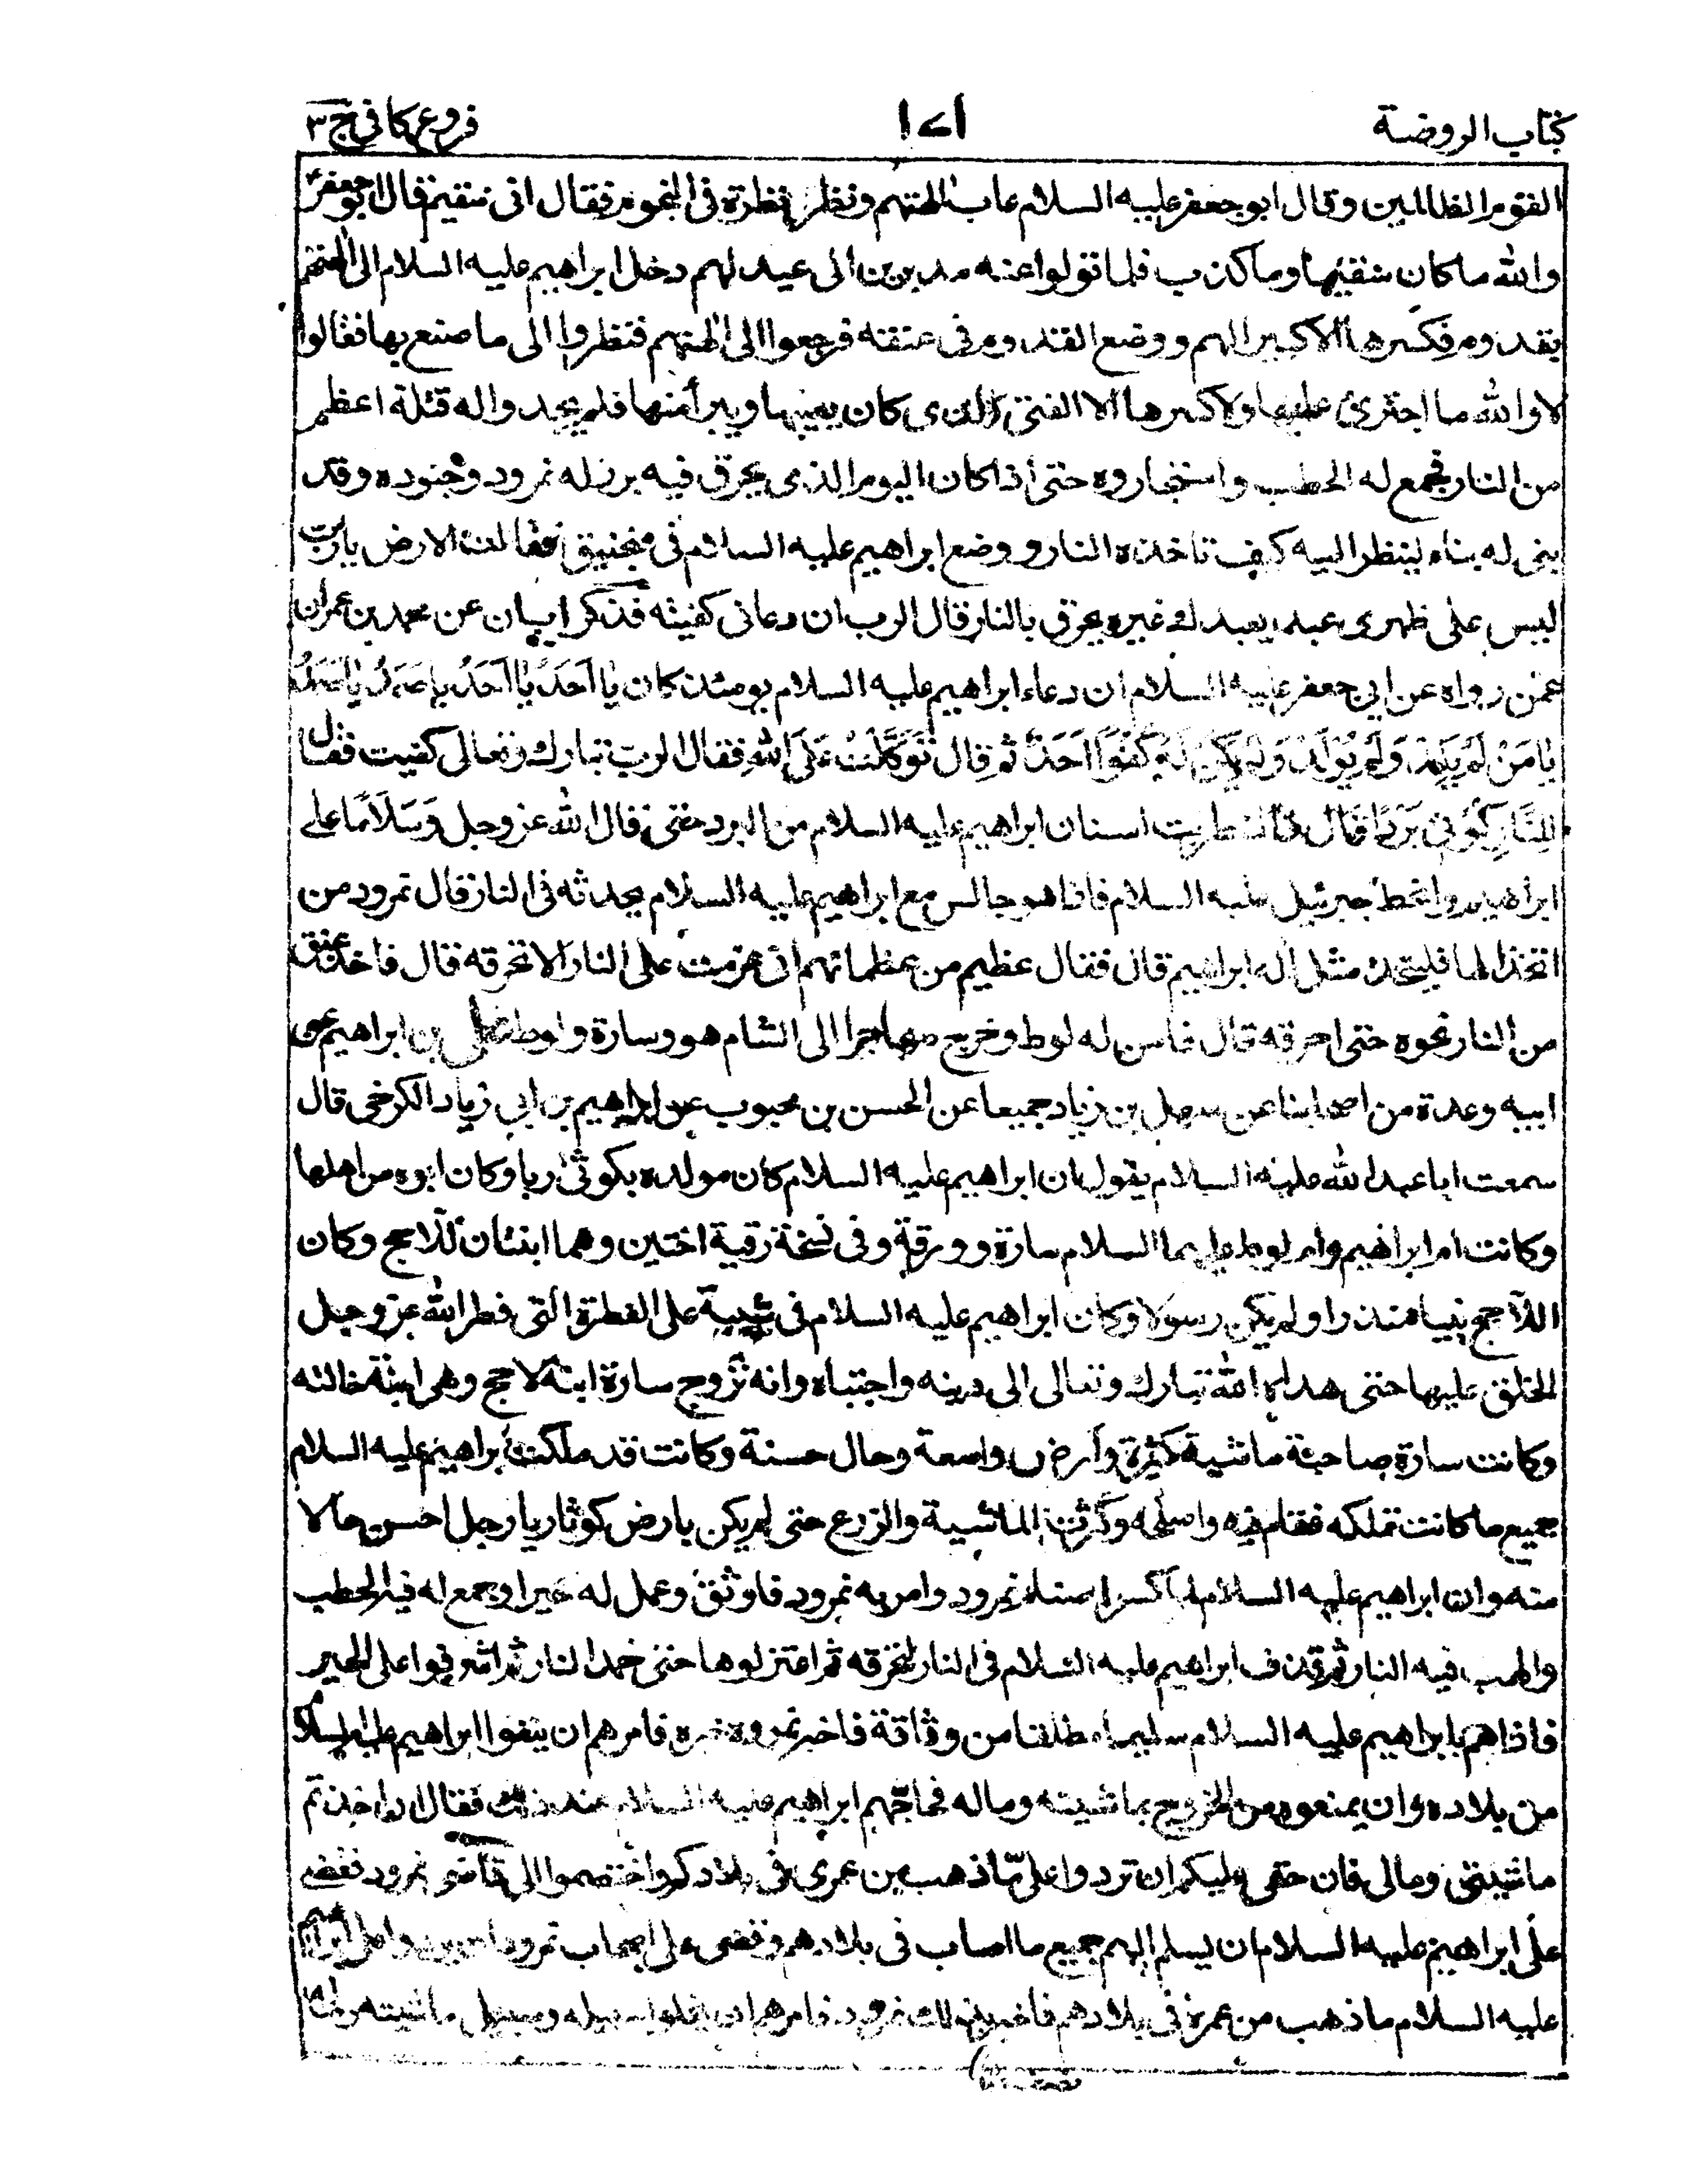 كتاب الروضة ١٧١ فروع كافى ج ٣
القوم الظالمين وقال ابو جعفر عليه السلام عاب الهتهم ونظر نظرة فى النجوم فقال انى سقيم قال ابو جعفر
والله ما كان سقيما وما كذب فلما تولوا عنه مدبرين الى عيد لهم دخل ابراهيم عليه السلام الى الهتهم
بقدوم فكسرها الا كبيرا لهم ووضع القدوم فى عنقه فرجعوا الى الهتهم فنظروا الى ما صنع بها فقالوا
لا والله ما اجترئ عليها ولا كسرها الا الفتى الذى كان يعيبها ويبرأ منها فلم يجدوا له قتلة اعظم
من النار فجمع له الحطب واستجاروه حتى اذا كان اليوم الذى يحرق فيه برز له نمرود وجنوده وقد
بنى له بناء لينظر اليه كيف تاخذه النار ووضع ابراهيم عليه السلام فى منجنيق فقالت الارض يا رب
ليس على ظهرى عبد يعبدك غيره يحرق بالنار قال الرب ان دعانى كفيته فذكر ابان عن محمد بن مروان
عمن رواه عن ابى جعفر عليه السلام ان دعاء ابراهيم عليه السلام يومئذ كان يَا اَحَدُ يَا اَحَدُ يَا صَمَدُ يَا صَمَدُ
يَا مَنْ لَمْ يَلِدْ وَلَمْ يُولَدْ وَلَمْ يَكُنْ لَهُ كُفُوًا اَحَدٌ ثم قال تَوَكَّلْتُ عَلَى اللهِ فقال الرب تبارك وتعالى كفيت فقال
لِلنَّارِ كُونِى بَرْدًا قال فاضطربت اسنان ابراهيم عليه السلام من البرد حتى قال الله عز وجل وَسَلَامًا على
ابراهيم وانحط جبرئيل عليه السلام فاذا هو جالس مع ابراهيم عليه السلام يحدثه فى النار قال نمرود من
اتخذ الها فليتخذ مثل اله ابراهيم قال فقال عظيم من عظمائهم انى عزمت على النار الا تحرقه قال فاخذ عنق
من النار نحوه حتى احرقه قال فامن له لوط وخرج مهاجرا الى الشام هو وسارة ولوط على بن ابراهيم عن
ابيه وعدة من اصحابنا عن سهل بن زياد جميعا عن الحسن بن محبوب عن ابراهيم بن ابى زياد الكرخى قال
سمعت ابا عبد الله عليه السلام يقول ان ابراهيم عليه السلام كان مولده بكوثى ربا وكان ابوه من اهلها
وكانت ام ابراهيم وام لوط عليهما السلام سارة وورقة وفى نسخة رقية اختين وهما ابنتان للاحج وكان
اللاحج نبيا منذرا ولم يكن رسولا وكان ابراهيم عليه السلام فى شبيبته على الفطرة التى فطر الله عز وجل
الخلق عليها حتى هداه الله تبارك وتعالى الى دينه واجتباه وانه تزوج سارة ابنة لاحج وهى ابنة خالته
وكانت سارة صاحبة ماشية كثيرة وأرض واسعة وحال حسنة وكانت قد ملكت ابراهيم عليه السلام
جميع ما كانت تملكه فقام فيه واصلحه وكثرت الماشية والزرع حتى لم يكن بارض كوثا ربا رجل احسن حالا
منه وان ابراهيم عليه السلام لما كسر اصنام نمرود وامر به نمرود فاوثق وعمل له حيرا وجمع له فيه الحطب
والهب فيه النار ثم قذف ابراهيم عليه السلام فى النار لتحرقه ثم اعتزلوها حتى خمد النار ثم اشرفوا على الحير
فاذا هم بابراهيم عليه السلام سليما مطلقا من وثاقة فاخبر نمرود خبره فامرهم ان ينفوا ابراهيم عليه السلام
من بلاده وان يمنعوه من الخروج بماشيته وماله فحاجهم ابراهيم عليه السلام عند ذلك فقال ان اخذتم
ماشيتى ومالى فان حقى عليكم ان تردوا على ما ذهب من عمرى فى بلادكم واختصموا الى قاضى نمرود فقضى
على ابراهيم عليه السلام ان يسلم اليهم جميع ما اصاب فى بلادهم وقضى على اصحاب نمرود ان يردوا على ابراهيم
عليه السلام ما ذهب من عمره فى بلادهم فاخبر بذلك نمرود فامرهم ان يخلوا سبيله وسبيل ماشيته وماله